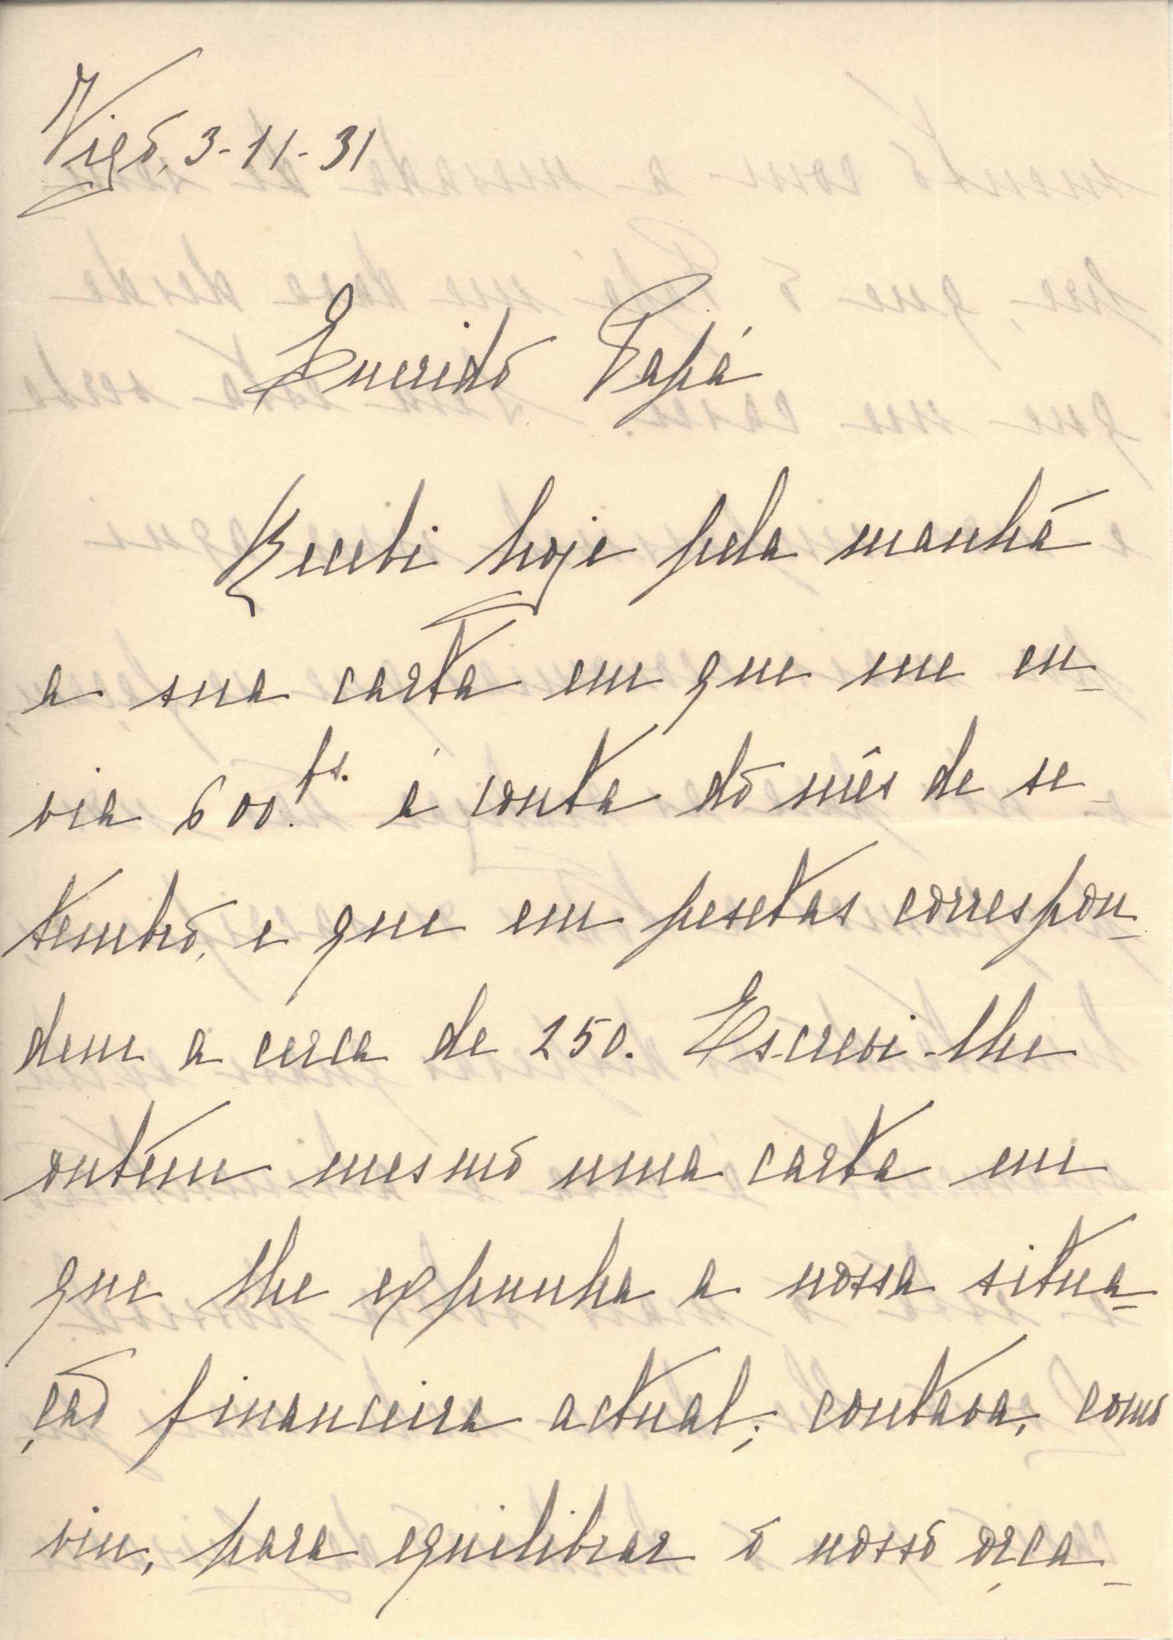 Vigo, 3-11-31
Querido Papá
Recebi hoje pela manhã
a sua carta em que me en-
via 600fs. á conta do mês de se-
tembro, e que em pesetas correspon-
dem a cêrca de 250. Escrevi-lhe
ontem mesmo uma carta em
que lhe expunha a nossa situa-
ção financeira actual; contava, como
viu, para equilibrar o nosso orça-